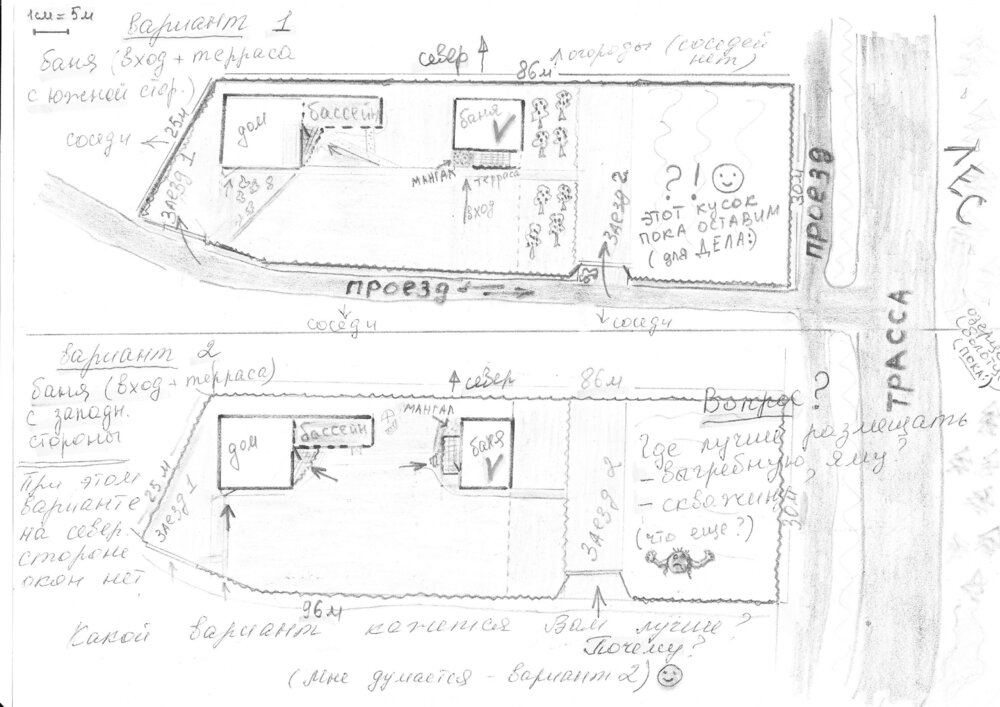 1см = 5м
Вариант 1
баня (вход + терраса
с южной стор.)
соседи
север
86м
огороды (соседей
нет)
25м
Заезд 1
дом
бассейн
баня
мангал
терраса
вход
Заезд 2
? ! 
этот кусок
пока оставим
(для дела:)
30м
проезд
трасса
проезд
соседи
соседи
Вариант 2
баня (вход + терраса)
с западн.
стороны
При этом
варианте
на север.
стороне
окон нет
север
86м
25м
Заезд 1
дом
бассейн
мангал
баня
Заезд 2
Вопрос?
Где лучше размещать
- выгребную яму?
- скважину?
(что еще?)
30м
96м
Какой вариант кажется Вам лучше?
Почему?
(мне думается - вариант 2)